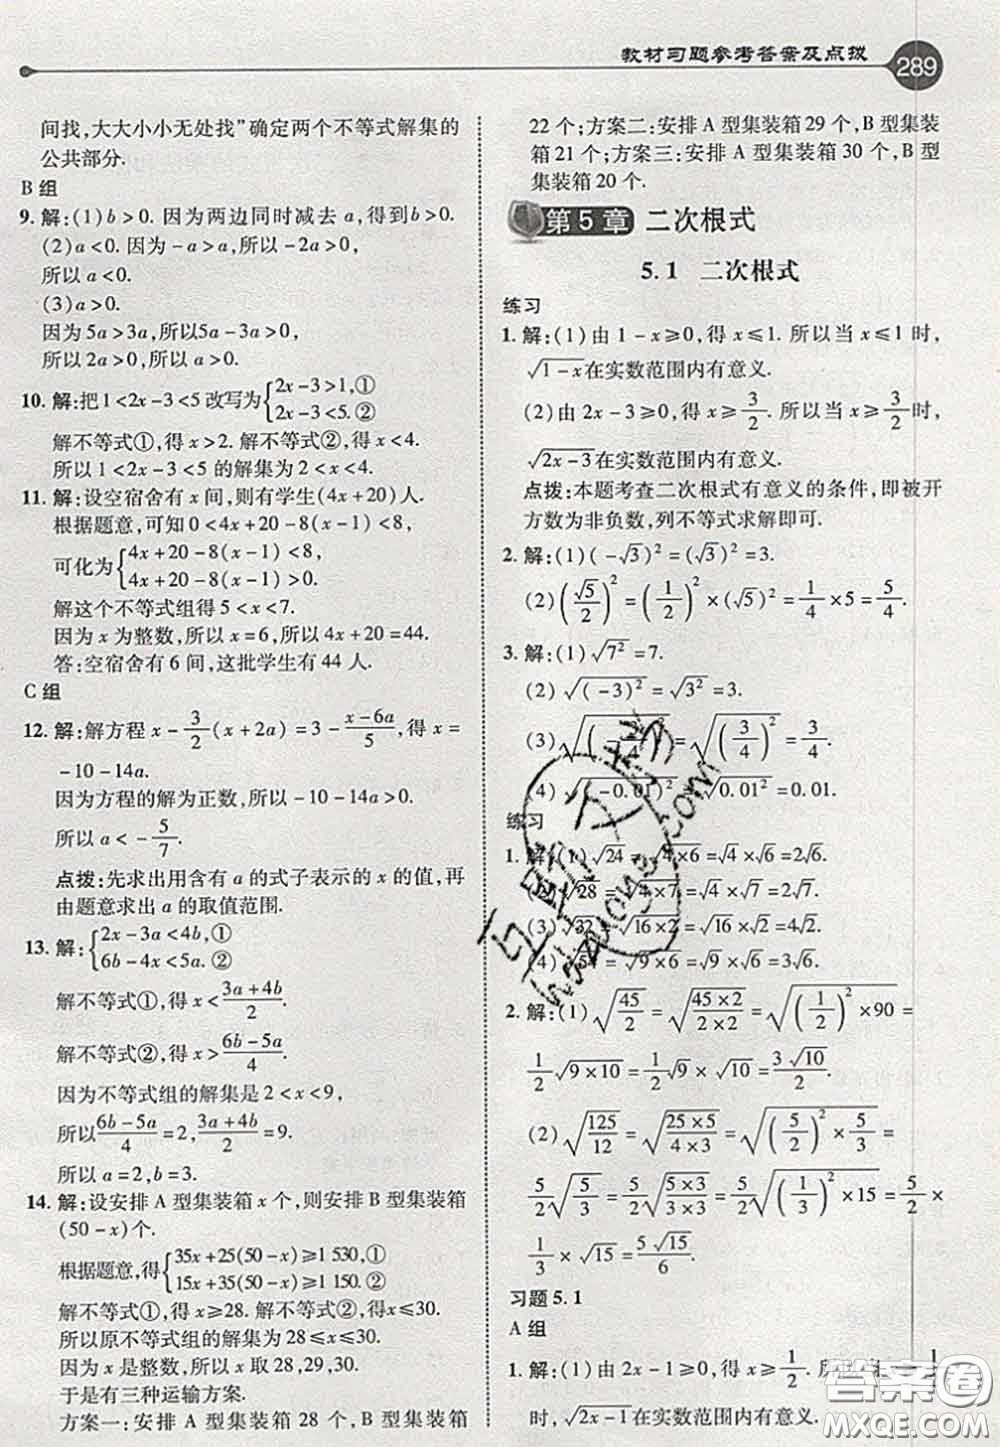 教材习题参考答案及点拨 289
间找,大大小小无处找"确定两个不等式解集的
公共部分.
B 组
9. 解:(1)b>0. 因为两边同时减去 a,得到 b>0.
(2)a<0. 因为-a>a,所以-2a>0,
所以 a<0.
(3)a>0.
因为 5a>3a,所以5a-3a>0,
所以 2a>0,所以 a>0.
10. 解:把 1<2x-3<5 改写为{2x-3>1,①
2x-3<5. ②
解不等式①,得 x>2. 解不等式②,得 x<4.
所以 1<2x-3<5 的解集为 2<x<4.
11. 解:设空宿舍有 x 间,则有学生(4x+20)人.
根据题意,可知 0<4x+20-8(x-1)<8,
可化为{4x+20-8(x-1)<8,
4x+20-8(x-1)>0,
解这个不等式组得 5<x<7.
因为 x 为整数,所以 x=6,所以 4x+20=44.
答:空宿舍有 6 间,这批学生有 44 人.
C 组
12. 解:解方程 x-3/2(x+2a)=3-(x-6a)/5,得 x=
-10-14a.
因为方程的解为正数,所以-10-14a>0.
所以 a<-5/7.
点拨:先求出用含有 a 的式子表示的 x 的值,再
由题意求出 a 的取值范围.
13. 解:{2x-3a<4b,①
6b-4x<5a. ②
解不等式①,得 x<(3a+4b)/2.
解不等式②,得 x>(6b-5a)/4.
因为不等式组的解集是 2<x<9,
所以(6b-5a)/4=2,(3a+4b)/2=9.
所以 a=2,b=3.
14. 解:设安排 A 型集装箱 x 个,则安排 B 型集装箱
(50-x)个.
根据题意,得{35x+25(50-x)≥1 530,①
15x+35(50-x)≥1 150. ②
解不等式①,得 x≥28. 解不等式②,得 x≤30.
所以原不等式组的解集为 28≤x≤30.
因为 x 是整数,所以 x 取 28,29,30.
于是有三种运输方案.
方案一:安排 A 型集装箱 28 个,B 型集装箱
22 个;方案二:安排 A 型集装箱 29 个,B 型集装
箱 21 个;方案三:安排 A 型集装箱 30 个,B 型
集装箱 20 个.
第 5 章 二次根式
5.1 二次根式
练习
1. 解:(1)由 1-x≥0,得 x≤1. 所以当 x≤1 时,
√(1-x)在实数范围内有意义.
(2)由 2x-3≥0,得 x≥3/2. 所以当 x≥3/2时,
√(2x-3)在实数范围内有意义.
点拨:本题考查二次根式有意义的条件,即被开
方数为非负数,列不等式求解即可.
2. 解:(1)(-√3)²=(√3)²=3.
(2)(√5/2)²=(1/2)²×(√5)²=1/4×5=5/4.
3. 解:(1)√(7²)=7.
(2)√((-3)²)=√(3²)=3.
(3)√((-3/4)²)=√((3/4)²)=3/4.
(4)√((-0.01)²)=√(0.01²)=0.01.
练习
1. 解:(1)√24=√(4×6)=√4×√6=2√6.
(2)√28=√(4×7)=√4×√7=2√7.
(3)√32=√(16×2)=√16×√2=4√2.
(4)√54=√(9×6)=√9×√6=3√6.
2. 解:(1)√(45/2)=√((45×2)/(2×2))=√((1/2)²×90)=
1/2√(9×10)=1/2√9×√10=3√10/2.
(2)√(125/12)=√((25×5)/(4×3))=√((5/2)²×5/3)=
5/2√(5/3)=5/2√((5×3)/(3×3))=5/2√((1/3)²×15)=5/2×
1/3×√15=5√15/6.
习题 5.1
A 组
1. 解:(1)由 2x-1≥0,得 x≥1/2. 所以当 x≥1/2
时,√(2x-1)在实数范围内有意义.
答案卷
MXQE.COM